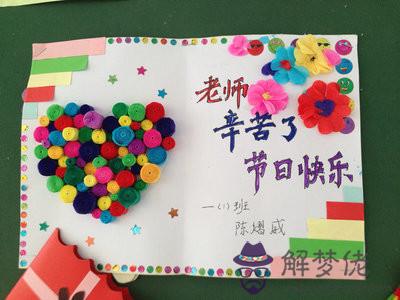 老师
辛苦了
节日快乐
一(1)班
陈熠威
解梦佬